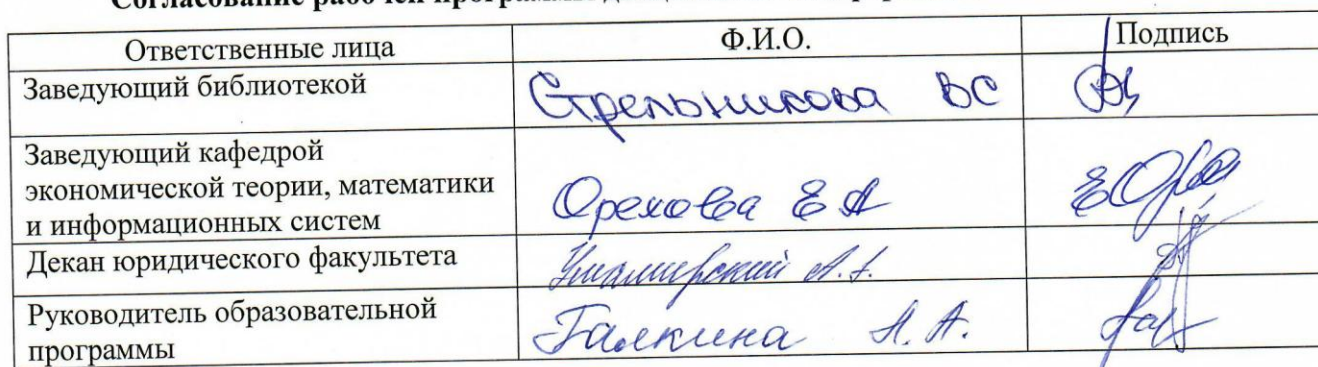 Согласование рабочей программы
Ответственные лица Ф.И.О. Подпись
Заведующий библиотекой Стрельникова ВС
Заведующий кафедрой
экономической теории, математики
и информационных систем Орехова Е А
Декан юридического факультета
Руководитель образовательной
программы Галкина А. А.